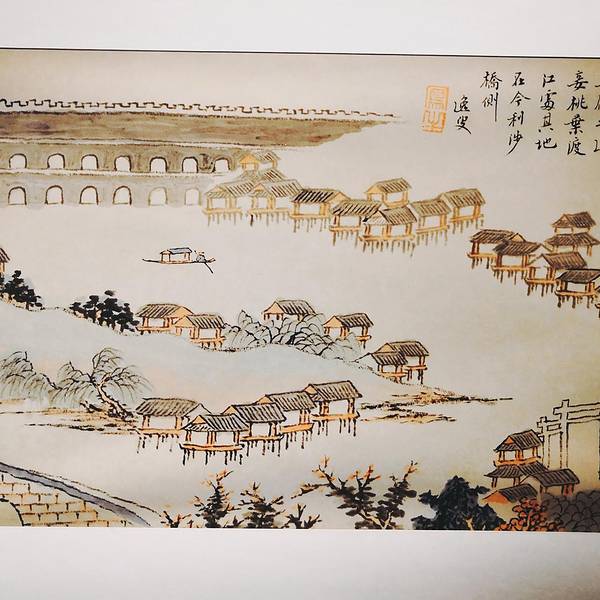 妾桃葉渡
江處其地
在今利涉
橋側
逸叟